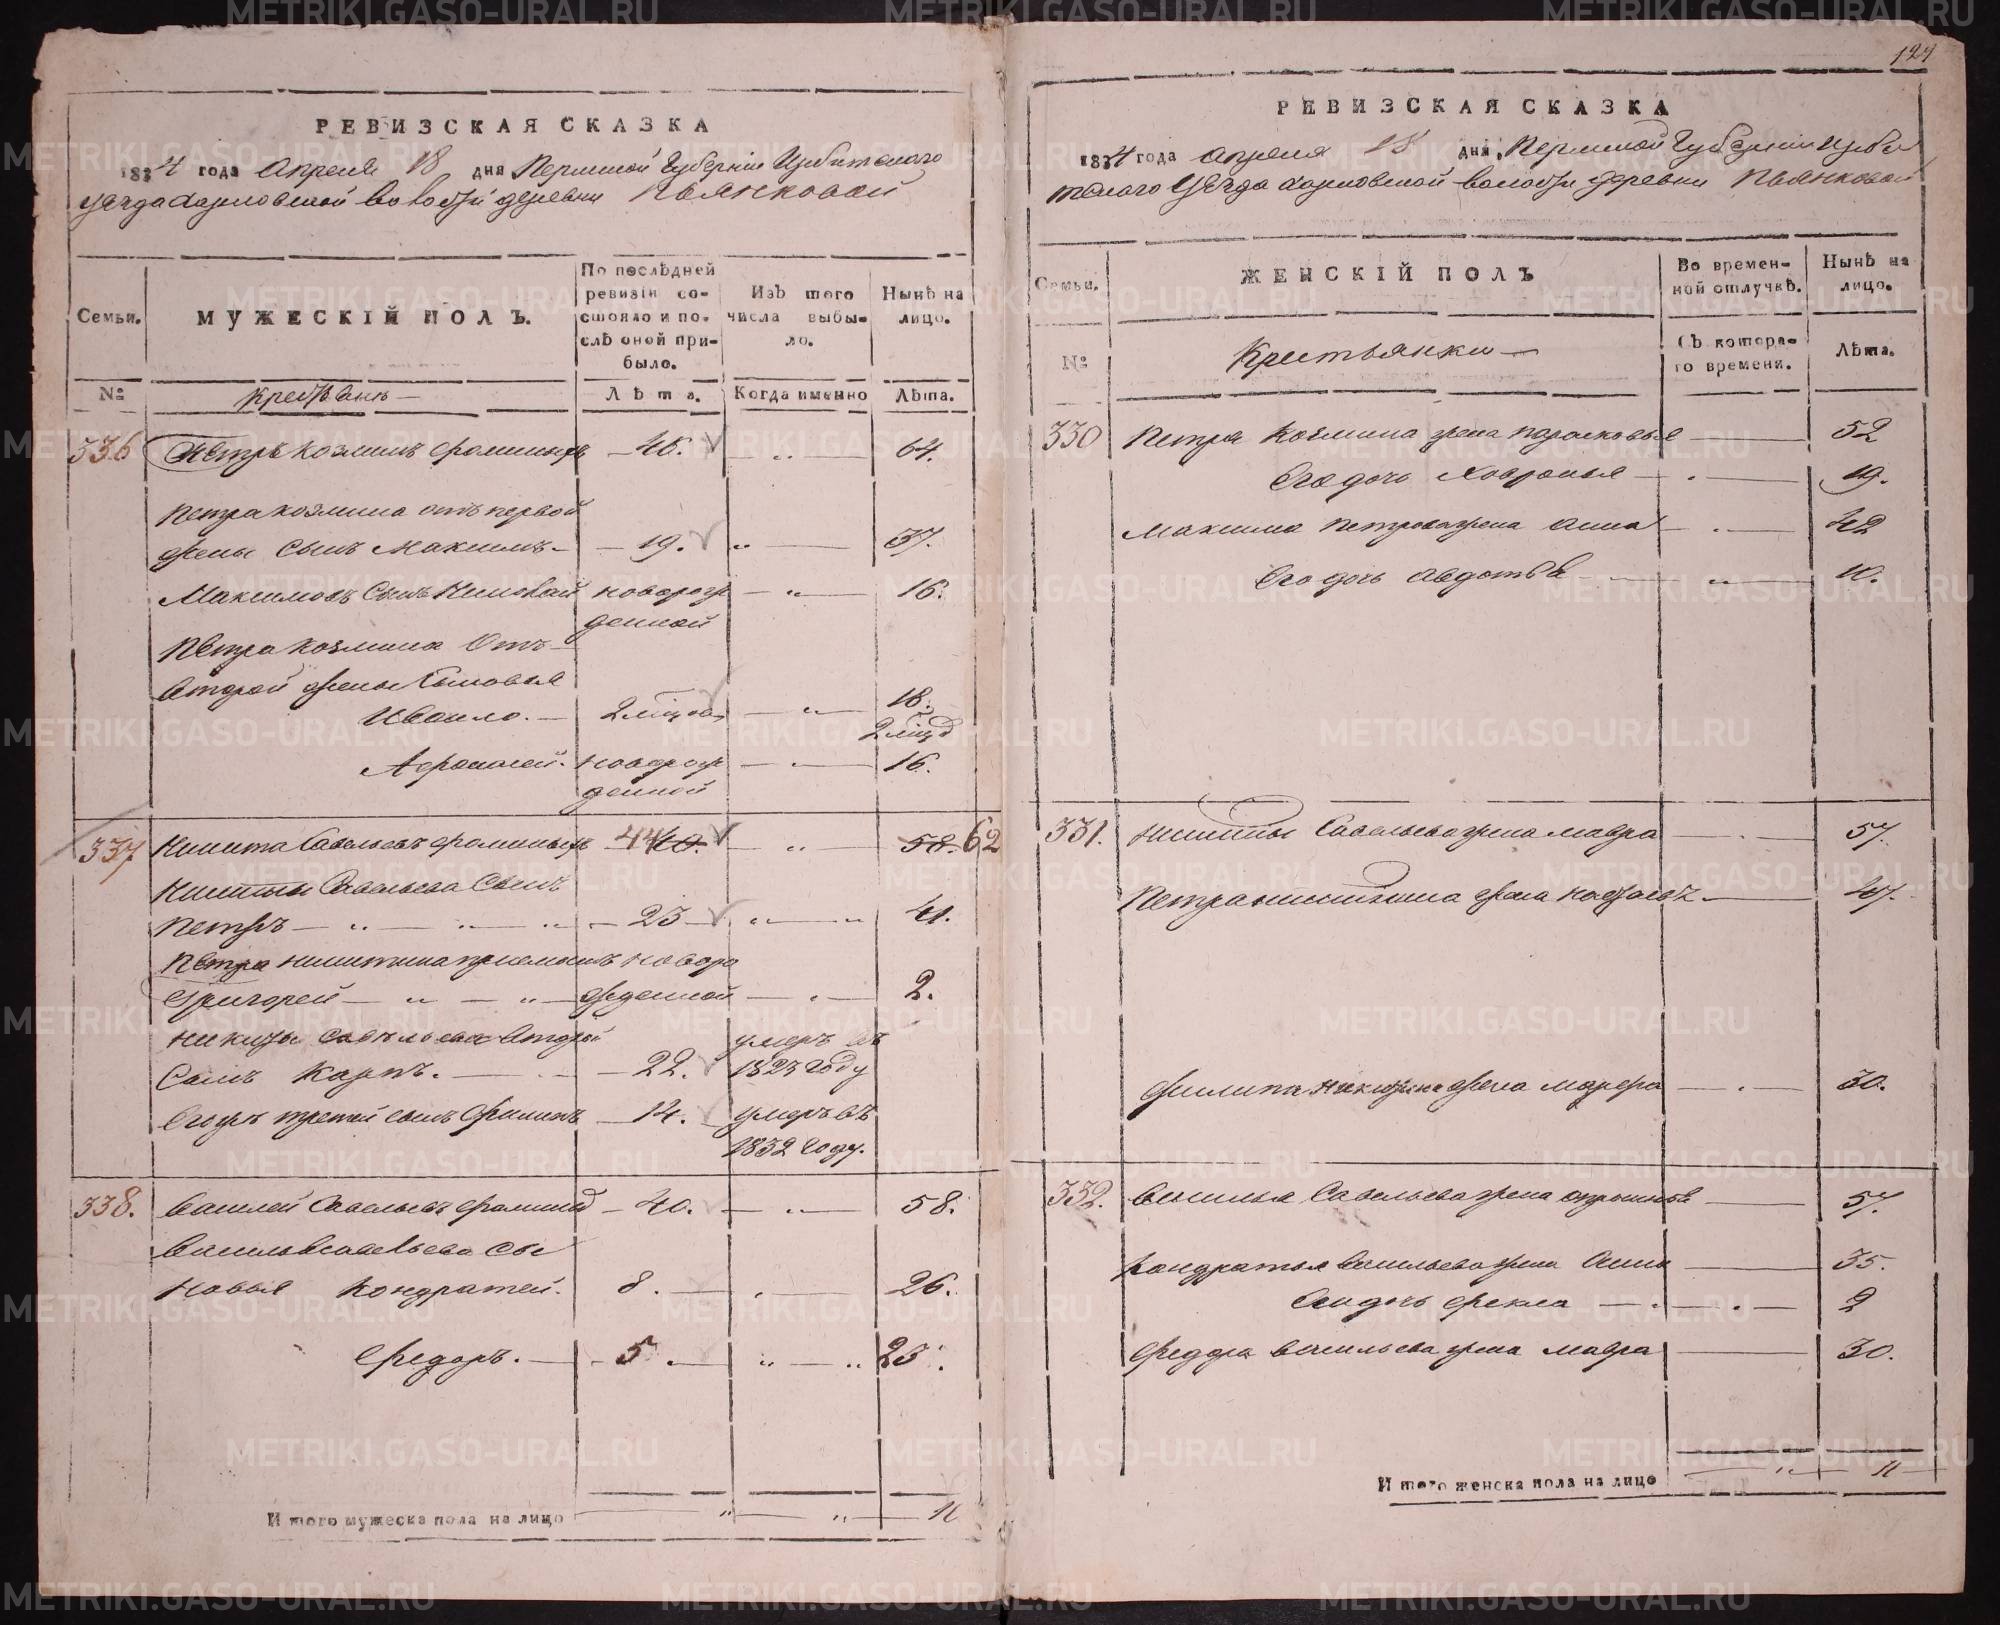 124
РЕВИЗСКАЯ СКАЗКА
1834 года Апреля 18 дня Пермской Губернiи Ирбитского
уезда волости деревни Пьянковой
Семьи.
МУЖЕСКIЙ ПОЛЪ.
По послѣдней ревизiи состояло и послѣ оной прибыло.
Изъ того числа выбыло.
Нынѣ на лицо.
№
Крестьяне
Лѣта.
Когда именно
Лѣта.
336 Петръ Козминъ Фоминыхъ 46. 64.
Петра Козмина отъ первой
жены сынъ Максимъ 19. 37.
Максимовъ сынъ новорож 16.
денной
Петра Козмина отъ
второй жены сыновья
Ивоило. 18.
Афонасей. новорож 16.
денной
337 Никита Савельевъ Фоминыхъ 44 40. 58. 62
Никиты Савельева сынъ
Петръ 23 41.
Петра Никитина новоро
Григорей жденной 2.
Никиты Савельева второй умеръ въ
сынъ Карпъ. 22. 1823 году
Егоръ третей сынъ Филипъ 14. умеръ въ
1832 году.
338. Василей Савельевъ Фоминыхъ 40. 58.
Василья Савельева сы
новья Кондратей. 8. 26.
Федоръ. 5 23.
Итого мужеска пола на лицо 11
РЕВИЗСКАЯ СКАЗКА
1834 года апреля 18 дня, Пермской Губернiи Ирби
тского Уезда волости деревни Пьянковой
Семьи.
ЖЕНСКIЙ ПОЛЪ
Во временной отлучкѣ.
Нынѣ на лицо.
№
Крестьянки
Съ котораго времени.
Лѣта.
330 Петра Козмина жена Парасковья 52
Его дочь Ховронья 19.
Максима Петрова жена Анна 42
Его дочь Авдотья 10.
331. Никиты Савельева жена Мавра 57.
Петра Никитина жена 47.
Филипа Никитина жена Марфа 30.
332. Василья Савельева жена 57.
Кондратья Васильева жена Анна 35.
Его дочь Фекла 2
Федора Васильева жена Мавра 30.
Итого женска пола на лицо 11
METRIKI.GASO-URAL.RU